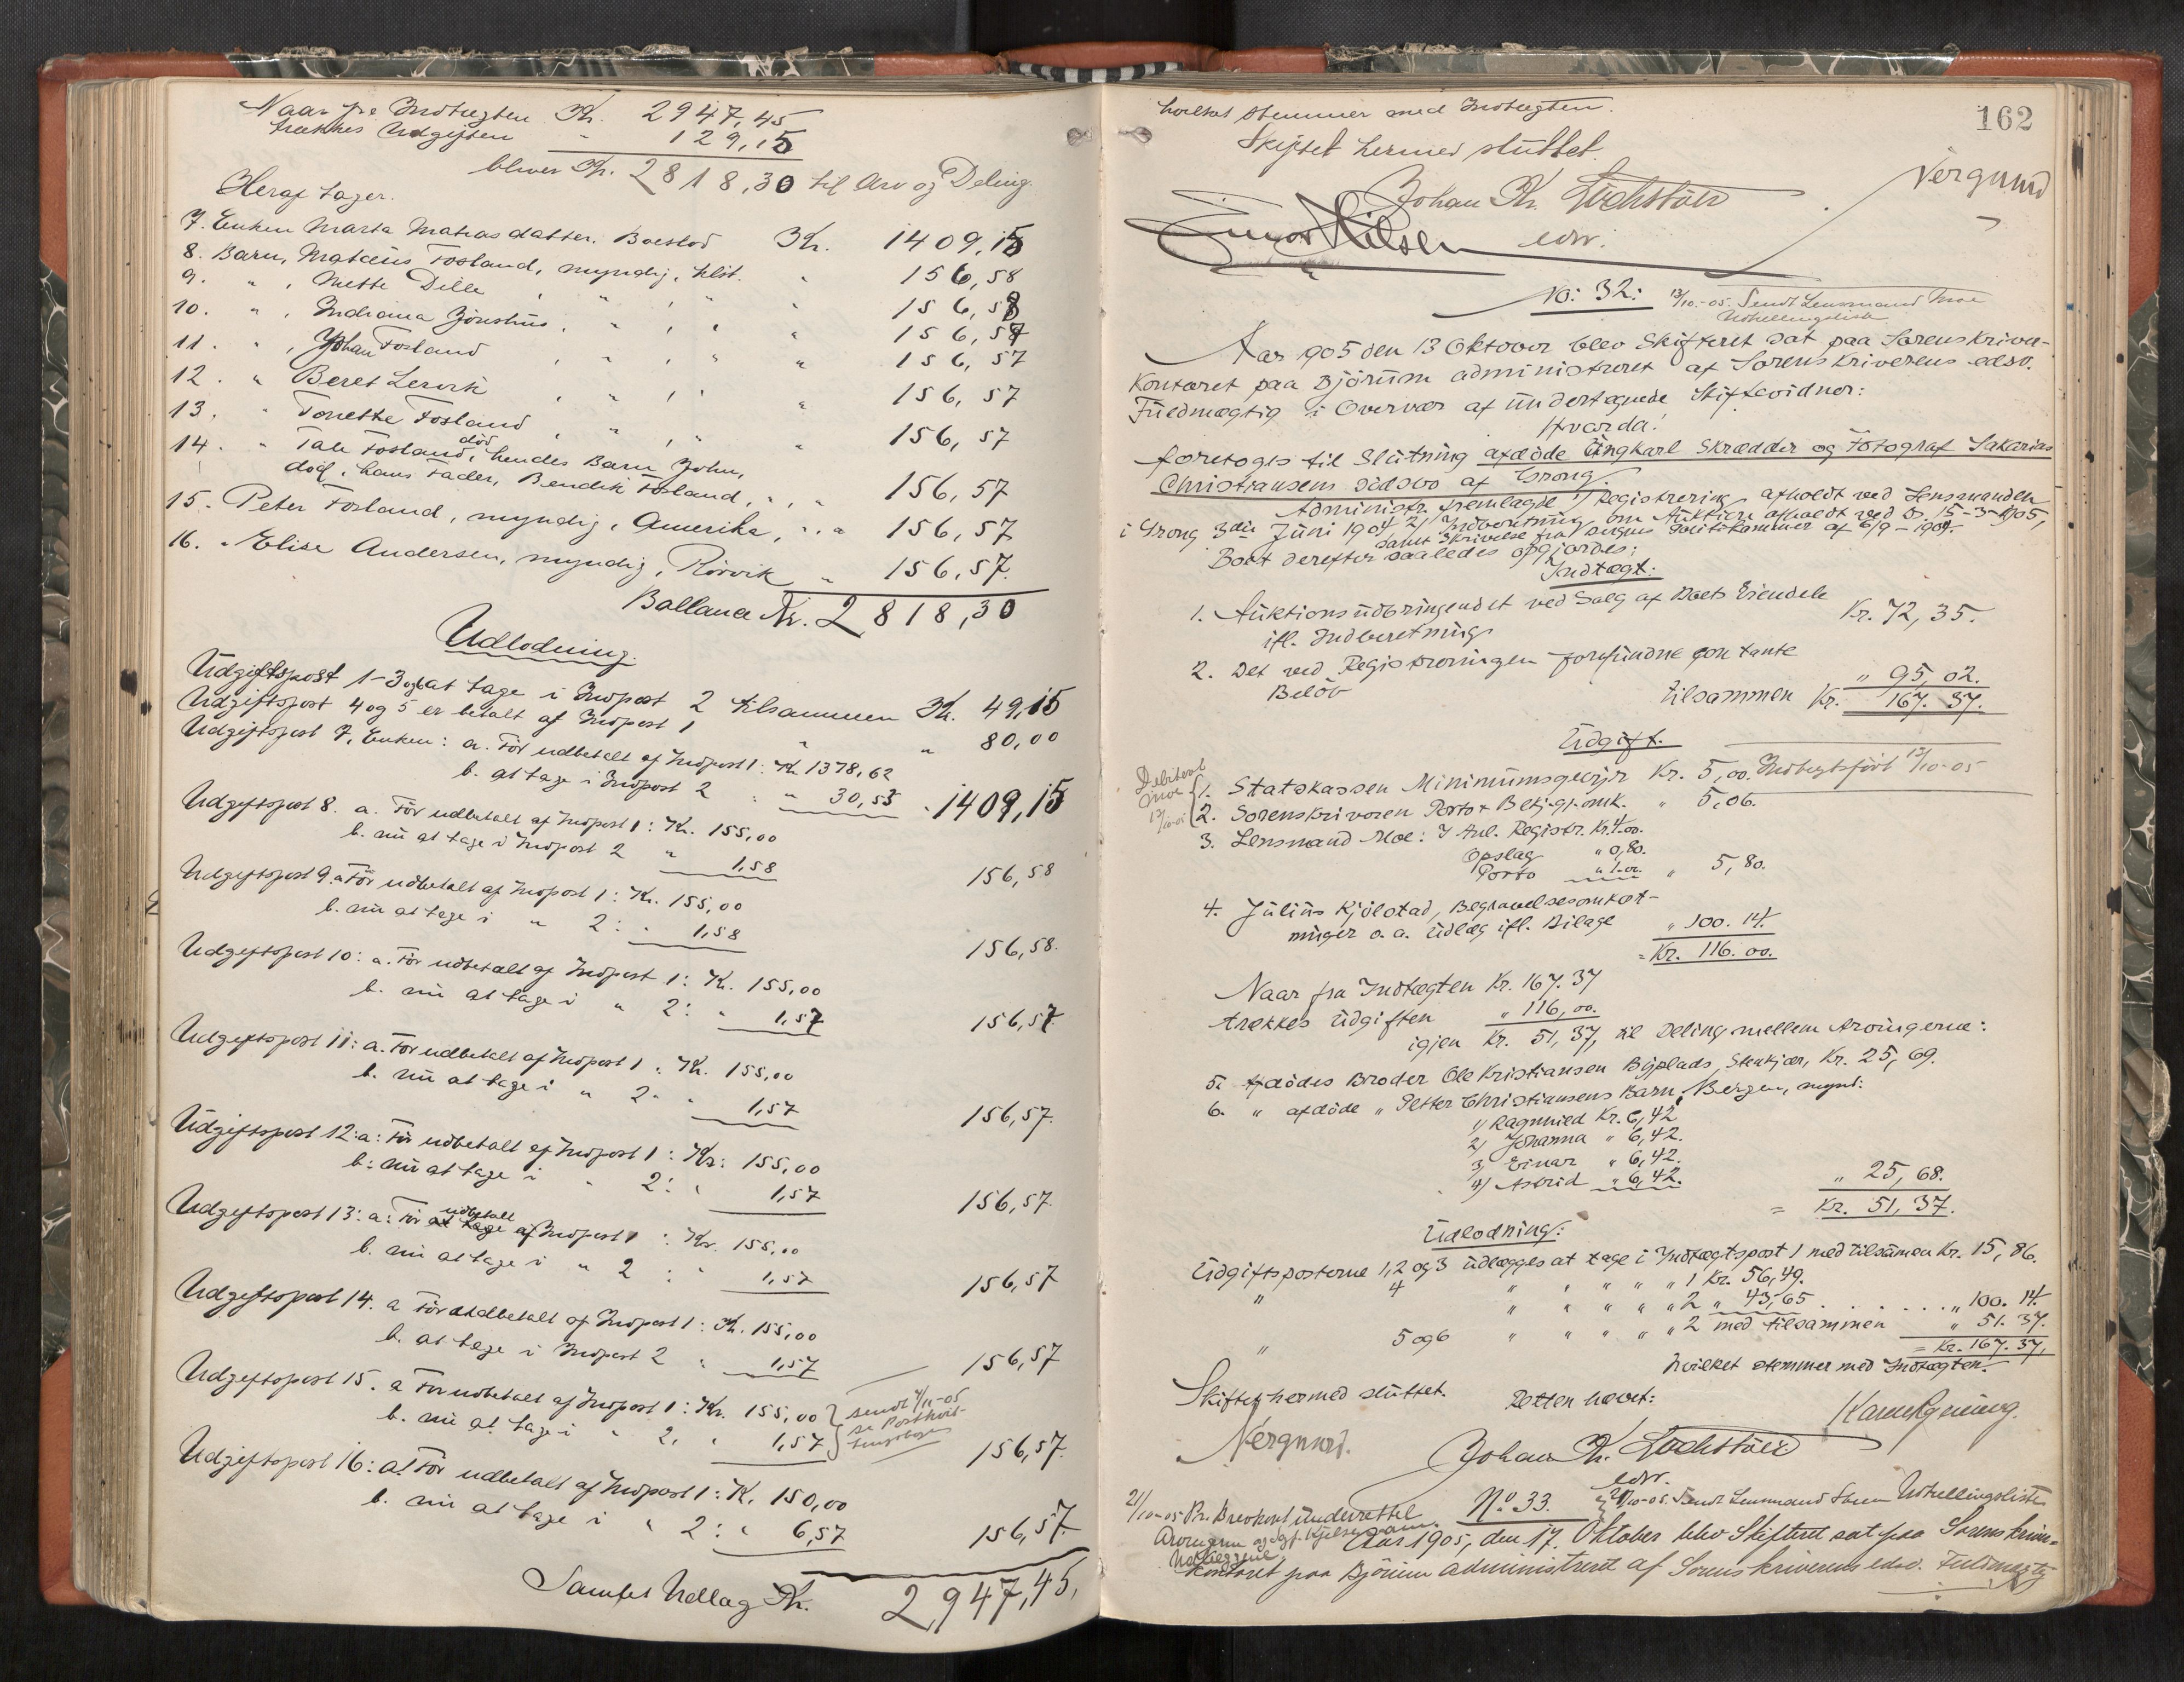 Naar fra Indtægten Kr. 2947,45
trækkes Udgiften " 129,15
bliver Kr. 2818,30 til Arv og Deling.
Heraf tager.
7. Enken Marta Matiasdatter. Boeslod Kr. 1409,15
8. Barn, Mateus Fosland, myndig, hlst. " 156,58
9. " , Mette Delle , " , " " 156,58
10. " , Indiana , " , " " 156,57
11. " , Johan Fosland , " , " " 156,57
12. " Beret Lervik , " , " " 156,57
13. " Tonette Fosland , " , " " 156,57
14. " Tale Fosland, død, hendes Barn John,
død, hans Fader, Bendik Fosland, " , " 156,57
15. Peter Fosland, myndig, Amerika, " " 156,57
16. " Elise Andersen, myndig, Rörvik " 156,57.
Ballance Kr. 2,818,30
Udlodning.
Udgiftspost 1-3 og 6 at tage i Indpost 2 tilsammen Kr. 49,15
Udgiftspost 4 og 5 er betalt af Indpost 1 " " 80,00
Udgiftspost 7, Enken: a. För udbetalt af Indpost 1: Kr. 1378,62
b. at tage i Indpost 2 " " 30,53 " 1409,15
Udgiftspost 8. a. För udbetalt af Indpost 1: Kr. 155,00
b. nu at tage i Indpost 2 " 1,58 156,58
Udgiftspost 9. a. För udbetalt af Indpost 1: Kr. 155,00
b. nu at tage i " 2: " 1,58 156,58.
Udgiftspost 10: a. För udbetalt af Indpost 1: Kr. 155,00
b. nu at tage i " 2: " 1,57 156,57
Udgiftspost 11: a. För udbetalt af Indpost 1: Kr. 155,00
b. nu at tage i " 2 " " 1,57 156,57.
Udgiftspost 12: a: För udbetalt af Indpost 1: Kr: 155,00
b: nu at tage i " 2: " 1,57 156,57.
Udgiftspost 13: a: För udbetalt af Indpost 1: Kr. 155,00
b. nu at tage i " 2 : " 1,57 156,57
Udgiftspost 14. a För udbetalt af Indpost 1: Kr. 155,00
b. at tage i Indpost 2 " 1,57 156,57
Udgiftspost 15. a För udbetalt af Indpost 1: Kr. 155,00 sendt 4/11-05
b. nu at tage i " 2, " 1,57 se 156,57.
Udgiftspost 16: a. För udbetalt af Indpost 1: Kr. 150,00
b. nu at tage i " 2: " 6,57 156,57.
Samlet Udlag Kr. 2,947,45,
162
hvilket stemmer med Indtægten.
Skiftet hermed sluttet.
Johan Kr.
edsv.
No: 32: 13/10-05. Sendt Lensmand Moe
Udstillingsliste
Aar 1905 den 13 Oktober blev Skifteret sat paa Sorenskriver-
kontoret paa Björum administreret af Sorenskriverens edsv.
Fuldmægtig i Overvær af undertegnede Skiftevidner:
Hvorda:
foretoges til Slutning afdöde Ungkarl Skrædder og Fotograf Sakarias
Christiansens Dödsbo af Grong.
Administr. fremlagde 1) Registrering afholdt ved Lensmanden
i Grong 3die Juni 1904 2) Indberetning om Auktion afholdt ved D. 15-3-1905,
samt Skrivelse fra politikammer af 6/9-1904.
Boet derefter saaledes opgjordes:
Indtægt:
1. Auktionsudbringendet ved Salg af Boets Eiendele
ifl. Indberetning Kr. 72,35.
2. Det ved Registreringen forefundne kontante
Belöb " 95,02.
tilsammen Kr. 167.37.
Udgift.
Debiteret
Moe
13/10-05
1. Statskassen Minimumsgebyr Kr. 5,00. Indtægtsfört 13/10-05
2. Sorenskriveren Porto & Bekj.gj.omk. " 5,06.
3. Lensmand Moe: I Anl. Registr. Kr. 4.00.
Opslag " 0,80.
Porto " 1.00. " 5,80.
4. Julius Kjölstad, Begravelsesomkost-
ninger o.a. Udlæg ifl. Bilage " 100.14.
= Kr. 116.00.
Naar fra Indtægten Kr. 167.37
trækkes Udgiften " 116,00.
igjen Kr. 51,37, til Deling mellem Arvingerne:
5. Afdödes Broder Ole Kristiansen Byplads, Stenkjær, Kr. 25,69.
6. " afdöde " Petter Christiansens Barn, Bergen, mynd:
1) Ragnhild Kr. 6,42
2) Johanna " 6,42.
3) Einar " 6,42.
4) Astrid " 6,42. " 25,68.
= Kr. 51,37.
Udlodning:
Udgiftsposterne 1, 2 og 3 udlægges at tage i Indtægtspost 1 med tilsamen Kr. 15,86.
" 4 " " " " " 1 Kr. 56,49.
" " " " " 2 " 43,65 . . . . . . " 100.14.
" 5 og 6 " " " " " 2 med tilsammen " 51.37.
= Kr. 167.37,
hvilket stemmer med Indtægten.
Skiftet hermed sluttet. Retten hævet:
Johan Kr.
edsv.
No. 33. 21/10-05. Sendt Lensmand Udstillingsliste
21/10-05 Pr. Brevkort underrettet
Arvingerne
Aar 1905, den 17. Oktober blev Skifteret sat paa Sorenskriver-
kontoret paa Björum administreret af Sorenskriverens edsv. Fuldmægtig